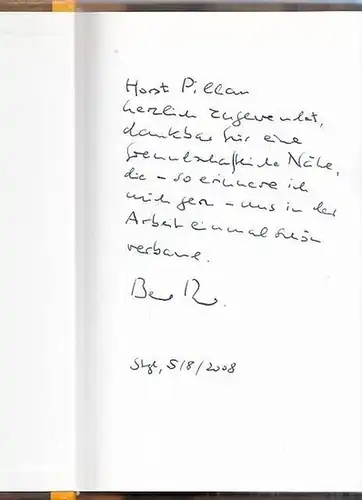 Horst Pillau
herzlich zugewendet,
dankbar für eine
freundschaftliche Nähe,
die – so erinnere ich
mich gern – uns in der
Arbeit einmal schön
verband.
Stgt, 5/8/2008